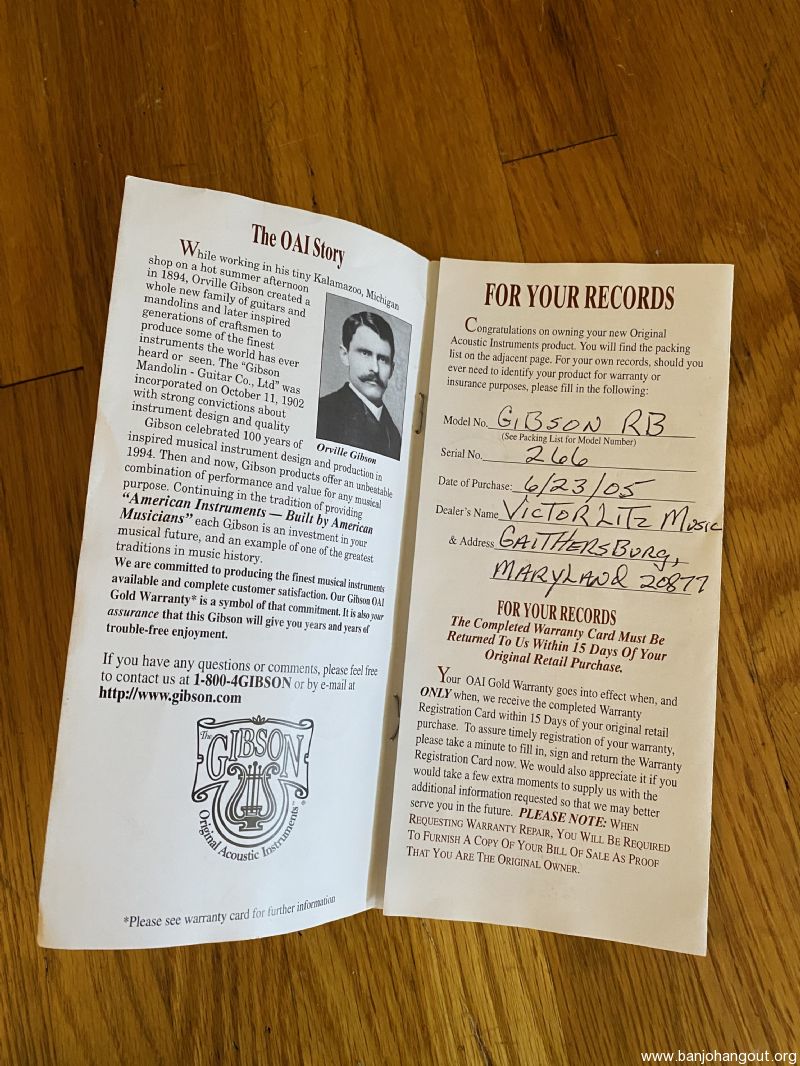 The OAI Story
While working in his tiny Kalamazoo, Michigan
shop on a hot summer afternoon
in 1894, Orville Gibson created a
whole new family of guitars and
mandolins and later inspired
generations of craftsmen to
produce some of the finest
instruments the world has ever
heard or seen. The "Gibson
Mandolin - Guitar Co., Ltd" was
incorporated on October 11, 1902
with strong convictions about
instrument design and quality
Orville Gibson
Gibson celebrated 100 years of
inspired musical instrument design and production in
1994. Then and now, Gibson products offer an unbeatable
combination of performance and value for any musical
purpose. Continuing in the tradition of providing
"American Instruments — Built by American
Musicians" each Gibson is an investment in your
musical future, and an example of one of the greatest
traditions in music history.
We are committed to producing the finest musical instruments
available and complete customer satisfaction. Our Gibson OAI
Gold Warranty* is a symbol of that commitment. It is also your
assurance that this Gibson will give you years and years of
trouble-free enjoyment.
If you have any questions or comments, please feel free
to contact us at 1-800-4GIBSON or by e-mail at
http://www.gibson.com
The
GIBSON
Original Acoustic Instruments™
®
*Please see warranty card for further information
FOR YOUR RECORDS
Congratulations on owning your new Original
Acoustic Instruments product. You will find the packing
list on the adjacent page. For your own records, should you
ever need to identify your product for warranty or
insurance purposes, please fill in the following:
Model No. GIBSON RB
(See Packing List for Model Number)
Serial No. 266
Date of Purchase: 6/23/05
Dealer's Name VICTOR LITZ MUSIC
& Address GAITHERSBURG,
MARYLAND 20877
FOR YOUR RECORDS
The Completed Warranty Card Must Be
Returned To Us Within 15 Days Of Your
Original Retail Purchase.
Your OAI Gold Warranty goes into effect when, and
ONLY when, we receive the completed Warranty
Registration Card within 15 Days of your original retail
purchase. To assure timely registration of your warranty,
please take a minute to fill in, sign and return the Warranty
Registration Card now. We would also appreciate it if you
would take a few extra moments to supply us with the
additional information requested so that we may better
serve you in the future. PLEASE NOTE: WHEN
REQUESTING WARRANTY REPAIR, YOU WILL BE REQUIRED
TO FURNISH A COPY OF YOUR BILL OF SALE AS PROOF
THAT YOU ARE THE ORIGINAL OWNER.
www.banjohangout.org